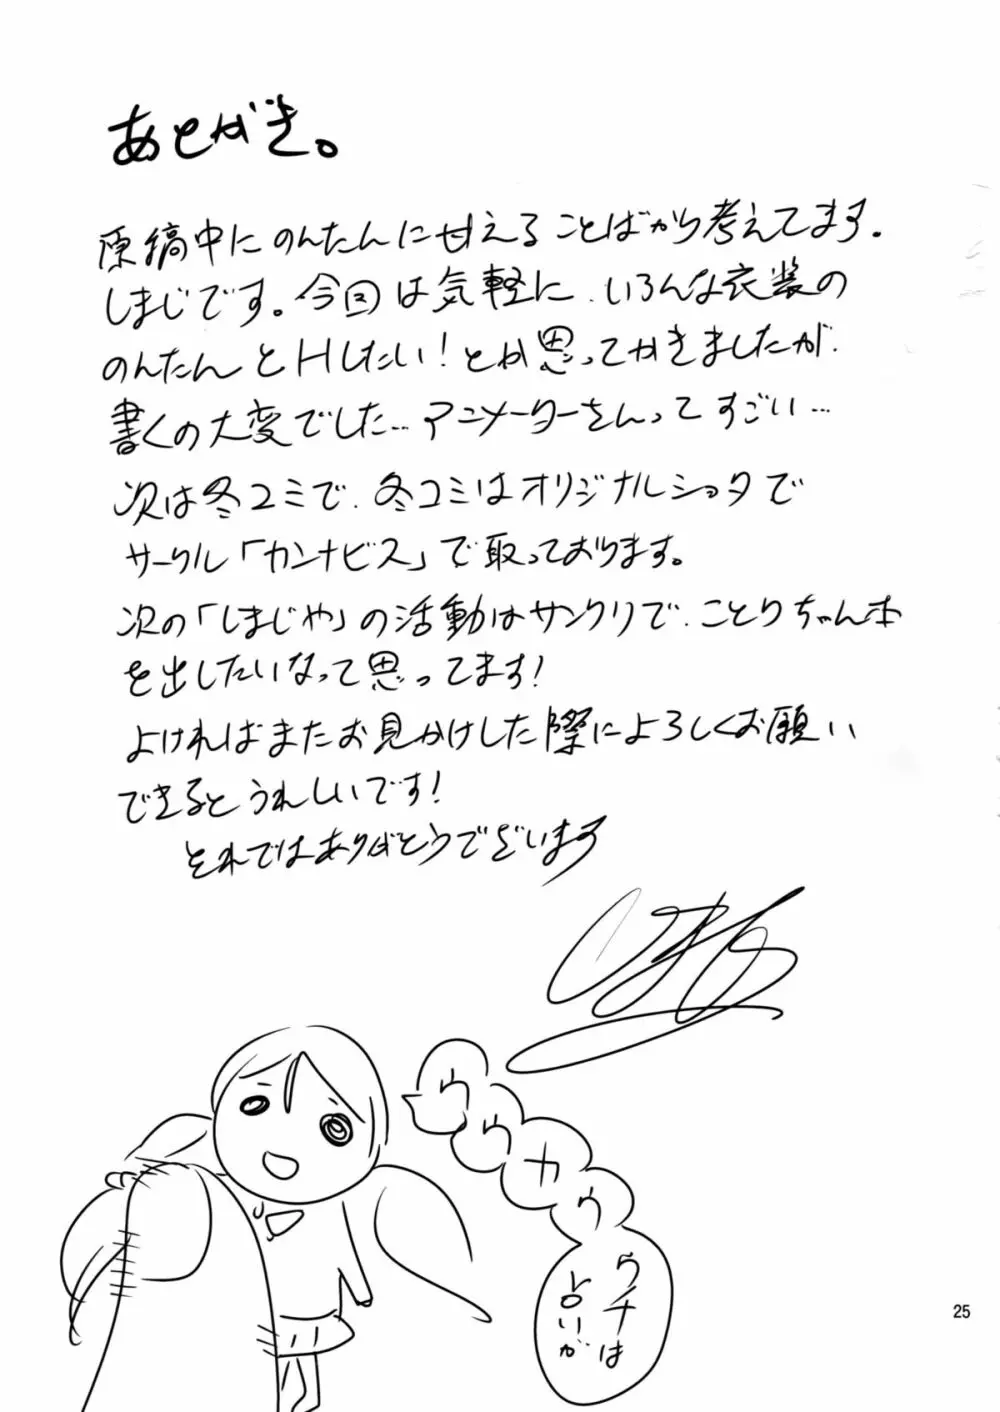 あとがき。
原稿中にのんたんに甘えることばかり考えてます。
しまじです。今回は気軽に、いろんな衣装の
のんたんとHしたい！とか思ってかきましたが、
書くの大変でした…アニメーターさんってすごい…
次は冬コミで、冬コミはオリジナルショタで
サークル「カンナビス」で取っております。
次の「しまじや」の活動はサンクリで、ことりちゃん本
を出したいなって思ってます！
よければまたお見かけした際によろしくお願い
できるとうれしいです！
それではありがとうございます
しまじ
ウ
ウ
カ
ウ
ウチは
占いが
25